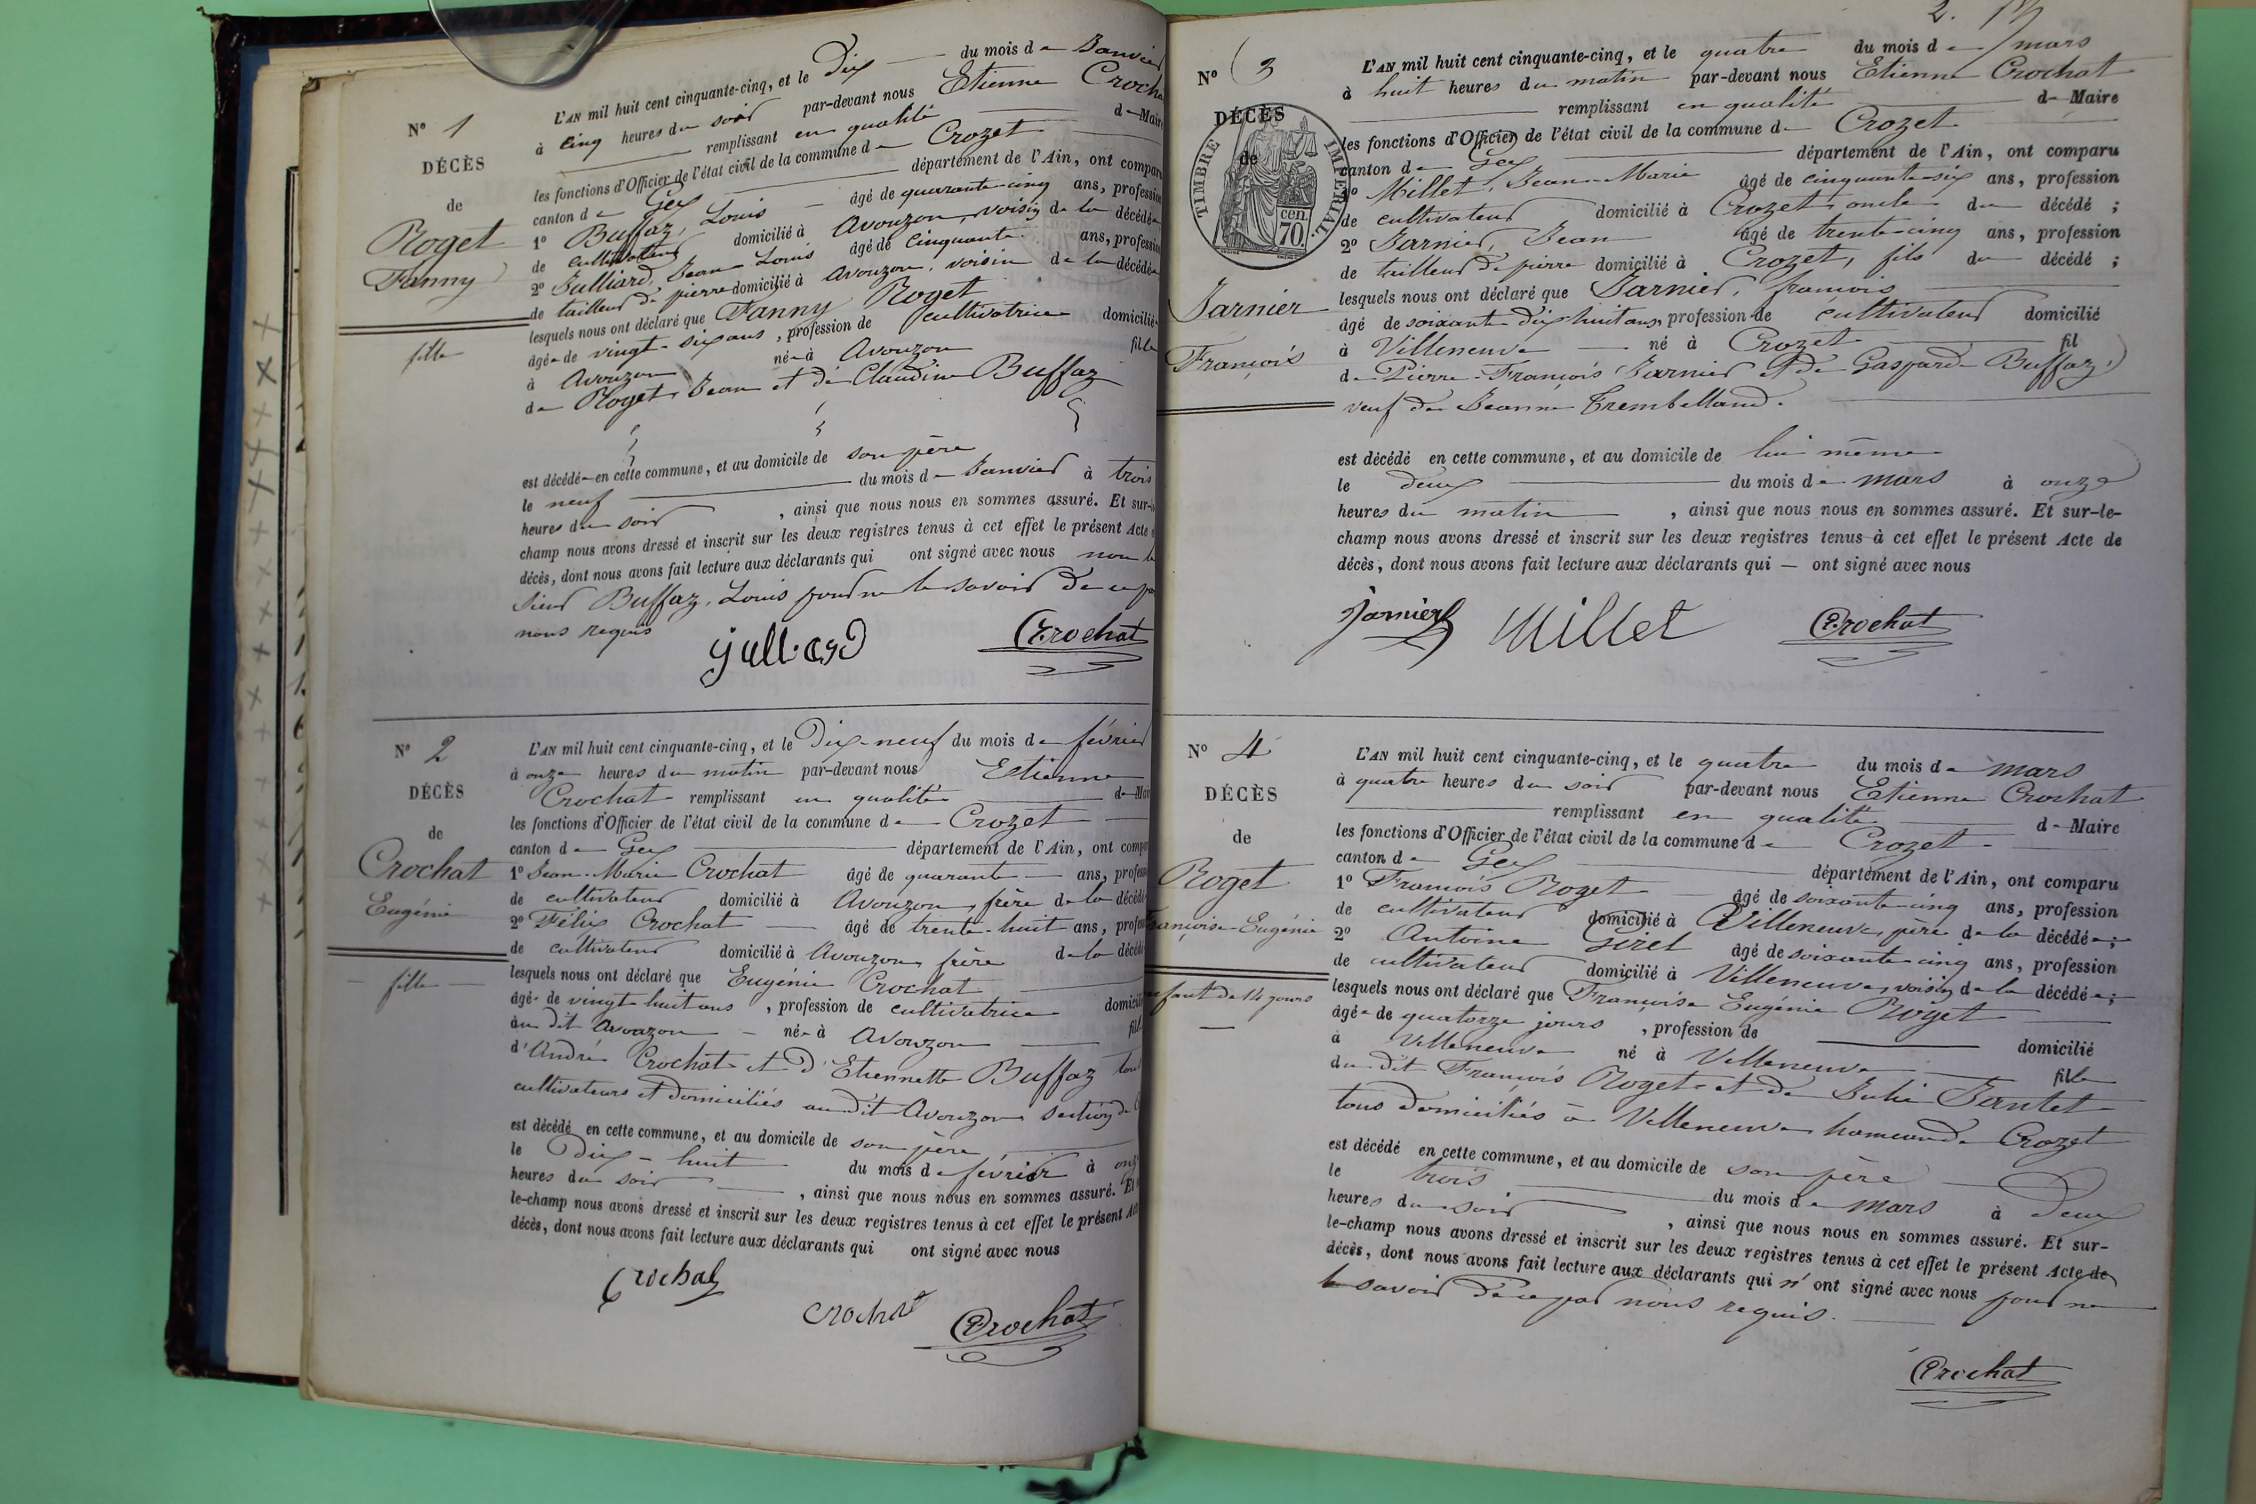 N° 1
DÉCÈS
de
Roget
Fanny
fille
L'AN mil huit cent cinquante-cinq, et le Dix du mois de Janvier
à cinq heures du soir par-devant nous Etienne Crochat
remplissant en qualité de Maire
les fonctions d'Officier de l'état civil de la commune de Crozet
canton de Gex département de l'Ain, ont comparu
1° Buffaz, Louis âgé de quarante-cinq ans, profession
de cultivateur domicilié à Avouzon, voisin de la décédée
2° Julliard, Jean Louis âgé de cinquante ans, profession
de tailleur de pierre domicilié à Avouzon, voisin de la décédée
lesquels nous ont déclaré que Fanny Roget
âgée de vingt-six ans, profession de cultivatrice domicilié
à Avouzon née à Avouzon fille
de Roget, Jean et de Claudine Buffaz
est décédée en cette commune, et au domicile de son père
le neuf du mois de Janvier à trois
heures du soir, ainsi que nous nous en sommes assuré. Et sur-le-
champ nous avons dressé et inscrit sur les deux registres tenus à cet effet le présent Acte
décès, dont nous avons fait lecture aux déclarants qui ont signé avec nous non le
sieur Buffaz, Louis pour ne le savoir de ce par
nous requis
julliard
Crochat
N° 2
DÉCÈS
de
Crochat
Eugénie
fille
L'AN mil huit cent cinquante-cinq, et le Dix-neuf du mois de février
à onze heures du matin par-devant nous Etienne
Crochat remplissant en qualité de Maire
les fonctions d'Officier de l'état civil de la commune de Crozet
canton de Gex département de l'Ain, ont comparu
1° Jean-Marie Crochat âgé de quarante ans, profession
de cultivateur domicilié à Avouzon, frère de la décédée
2° Félix Crochat âgé de trente-huit ans, profession
de cultivateur domicilié à Avouzon, frère de la décédée
lesquels nous ont déclaré que Eugénie Crochat
âgée de vingt-huit ans, profession de cultivatrice domicilié
au dit Avouzon née à Avouzon fille
d'André Crochat et d'Etiennette Buffaz tous
cultivateurs et domiciliés au dit Avouzon, section de
est décédé en cette commune, et au domicile de son père
le Dix-huit du mois de février à onze
heures du soir, ainsi que nous nous en sommes assuré. Et
le-champ nous avons dressé et inscrit sur les deux registres tenus à cet effet le présent Acte
décès, dont nous avons fait lecture aux déclarants qui ont signé avec nous
Crochat
Crochat
Crochat
2.
N° 3
DÉCÈS
de
TIMBRE IMPÉRIAL.
70 cen.
Jarnier
François
L'AN mil huit cent cinquante-cinq, et le quatre du mois de mars
à huit heures du matin par-devant nous Etienne Crochat
remplissant en qualité de Maire
les fonctions d'Officier de l'état civil de la commune de Crozet
canton de Gex département de l'Ain, ont comparu
1° Millet, Jean-Marie âgé de cinquante-six ans, profession
de cultivateur domicilié à Crozet, oncle du décédé ;
2° Jarnier, Jean âgé de trente-cinq ans, profession
de tailleur de pierre domicilié à Crozet, fils du décédé ;
lesquels nous ont déclaré que Jarnier, françois
âgé de soixante dix huit ans, profession de cultivateur domicilié
à Villeneuve né à Crozet fil
de Pierre-François Jarnier et de Gasparde Buffaz,
veuf de Jeanne Trembelland.
est décédé en cette commune, et au domicile de lui même
le deux du mois de mars à onze
heures du matin, ainsi que nous nous en sommes assuré. Et sur-le-
champ nous avons dressé et inscrit sur les deux registres tenus à cet effet le présent Acte de
décès, dont nous avons fait lecture aux déclarants qui — ont signé avec nous
Jarnier Millet Crochat
N° 4
DÉCÈS
de
Roget
Françoise-Eugénie
enfant de 14 jours
L'AN mil huit cent cinquante-cinq, et le quatre du mois de mars
à quatre heures du soir par-devant nous Etienne Crochat
remplissant en qualité de Maire
les fonctions d'Officier de l'état civil de la commune de Crozet
canton de Gex département de l'Ain, ont comparu
1° François Roget âgé de soixante-cinq ans, profession
de cultivateur domicilié à Villeneuve, père de la décédée ;
2° Antoine Girel âgé de soixante-cinq ans, profession
de cultivateur domicilié à Villeneuve, voisin de la décédée ;
lesquels nous ont déclaré que Françoise Eugénie Roget
âgée de quatorze jours, profession de domicilié
à Villeneuve né à Villeneuve fille
du dit François Roget et de Julie Jantet
tous domiciliés à Villeneuve hameau de Crozet
est décédé en cette commune, et au domicile de son père
le trois du mois de mars à Deux
heures du soir, ainsi que nous nous en sommes assuré. Et sur-
le-champ nous avons dressé et inscrit sur les deux registres tenus à cet effet le présent Acte de
décès, dont nous avons fait lecture aux déclarants qui n'ont signé avec nous pour ne
le savoir De ce par nous requis.
Crochat